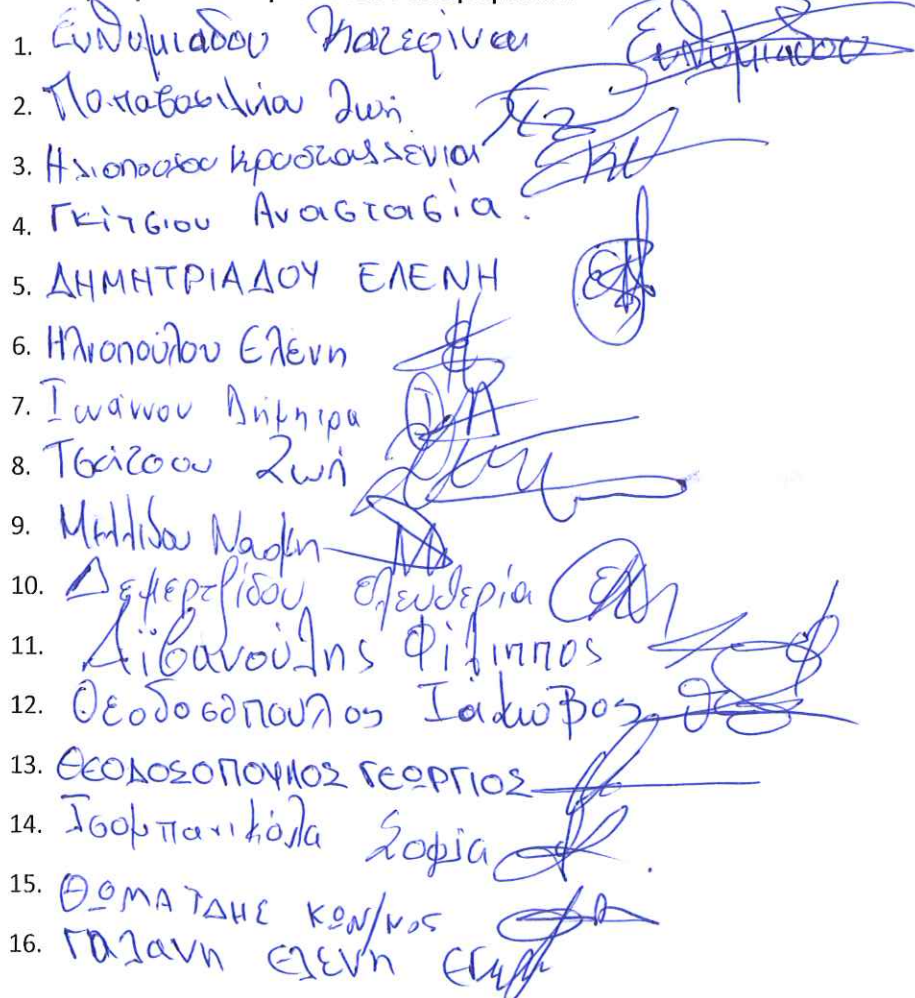 1. Ευθυμιάδου Κατερίνα Ευθυμιάδου
2. Παπαβασιλείου Ζωή
3. Ηλιοπούλου Κρουσταλλένια
4. Γκίτσιου Αναστασία.
5. ΔΗΜΗΤΡΙΑΔΟΥ ΕΛΕΝΗ
6. Ηλιοπούλου Ελένη
7. Ιωάννου Δήμητρα
8. Τσάτσου Ζωή
9. 
10. Δεμερτζίδου Ελευθερία
11. Αϊβανούλης Φίλιππος
12. Θεοδοσόπουλος Ιάκωβος
13. ΘΕΟΔΟΣΟΠΟΥΛΟΣ ΓΕΩΡΓΙΟΣ
14. Τσομπανικόλα Σοφία
15. ΘΩΜΑΪΔΗΣ ΚΩΝ/ΝΟΣ
16. Γαλάνη Ελένη